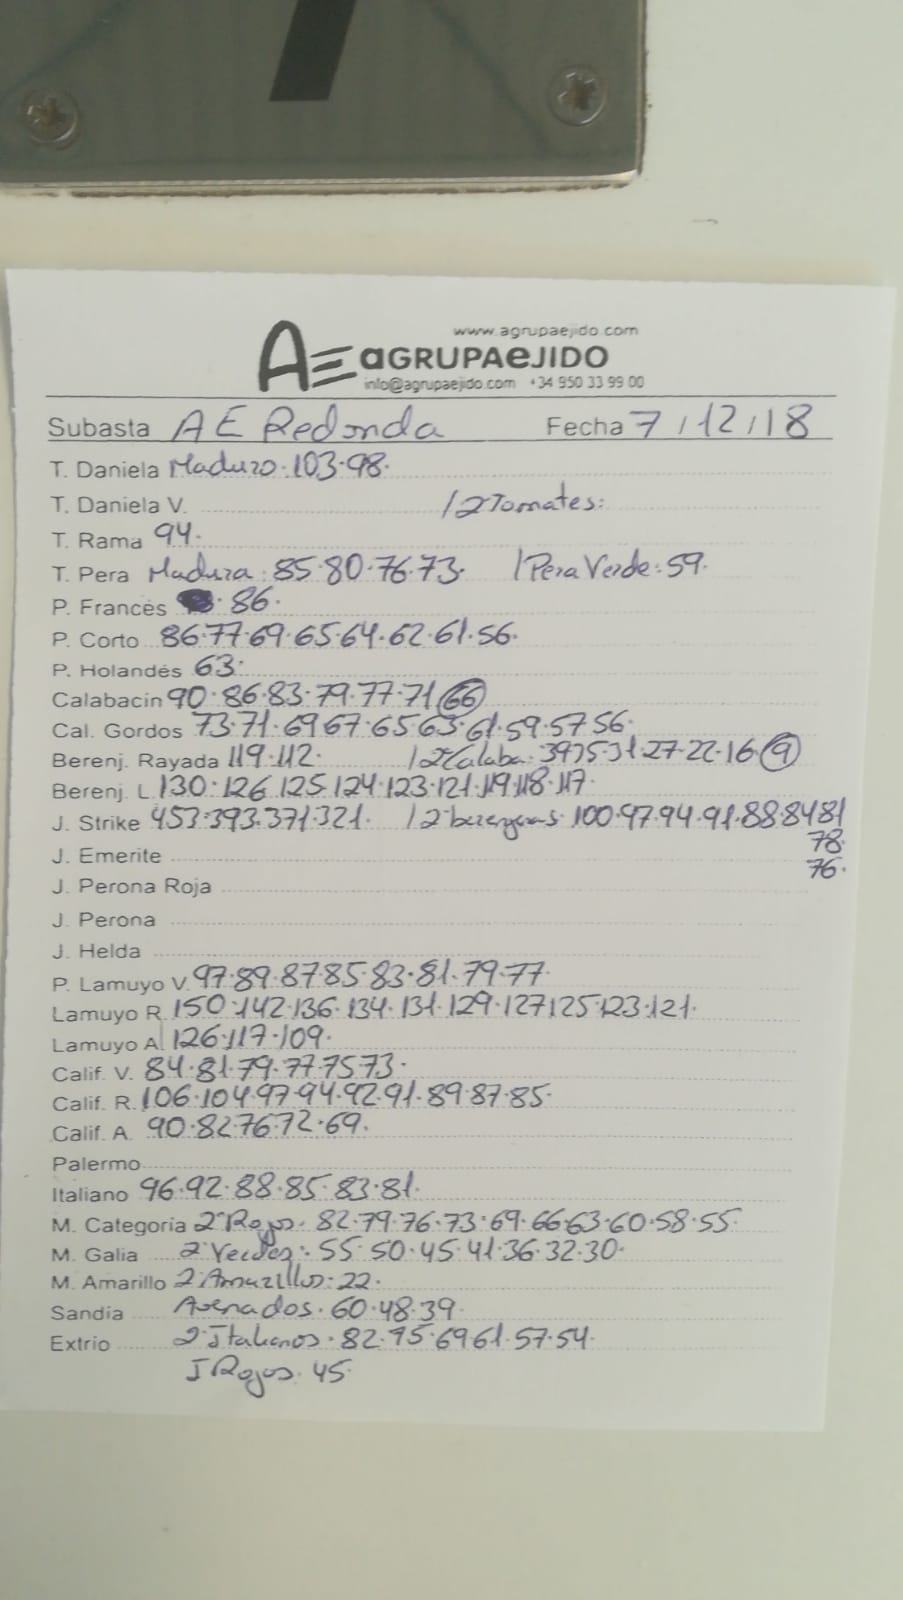 www.agrupaejido.com
AE aGRUPAeJIDO
info@agrupaejido.com +34 950 33 99 00
Subasta AE Redonda Fecha 7/12/18
T. Daniela Maduro. 103.98.
T. Daniela V. / 2 Tomates:
T. Rama 94.
T. Pera Madura: 85.80.76.73. / Pera Verde: 59.
P. Francés 86.
P. Corto 86.77.69.65.64.62.61.56.
P. Holandés 63.
Calabacin 90.86.83.79.77.71 66
Cal. Gordos 73.71.69 67.65.63.61.59.57 56.
Berenj. Rayada 119.112. / 2ª Calaba: 39 35 31.27.22.16. 9
Berenj. L. 130.126.125.124.123.121.119.118.117.
J. Strike 453.393.371.321. / 2ª berengenas 100.97.94.91.88.84 81
78.
J. Emerite 76.
J. Perona Roja
J. Perona
J. Helda
P. Lamuyo V. 97.89.87 85.83.81.79.77.
Lamuyo R. 150.142.136.134.131.129.127 125.123.121.
Lamuyo A. 126.117.109.
Calif. V. 84.81.79.77.75 73.
Calif. R. 106.104.97.94.92.91.89.87.85.
Calif. A. 90.82.76.72.69.
Palermo
Italiano 96.92.88.85.83.81.
M. Categoría 2ª Rojos: 82.79.76.73.69.66 63.60.58.55.
M. Galia 2 Verdes: 55.50.45.41.36.32.30.
M. Amarillo 2 Amarillos: 22.
Sandía Asenados. 60.48.39.
Extrio 2 Italianos. 82.75.69 61.57.54.
I Rojos. 45.